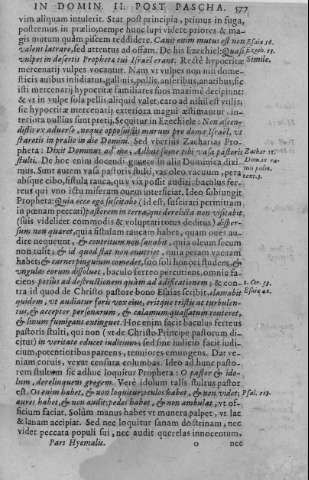 IN DOMIN. II. POST PASCHA. 577
vim aliquam intulerit. Stat post principia, primus in fuga,
postremus in prælio, nempe hunc lupi videre priores & ma-
gis mutum quàm piscem reddidere. Canis enim mutus est non Esaiæ 56.
valens latrare, sed attentus ad offam. De his Ezechiel: Quasi Ezech. 13.
vulpes in desertis Propheta tui Israel erant. Rectè hypocritæ Simile.
mercenarij vulpes vocantur. Nam vt vulpes non nisi dome-
sticis auibus insidiatur, gallinis, pullis, anseribus, anatibus, sic
isti mercenarij hypocritæ familiares suos maximè decipiunt:
& vt in vulpe sola pellis aliquid valet, caro ad nihil est vtilis:
sic hypocritæ mercenarij exteriora magni æstimantur, in-
teriora nullius sunt pretij. Sequitur in Ezechiele: Non ascen-
distis ex aduerso, neque opposuistis murum pro domo Israel, vt
staretis in prælio in die Domini. Sed vberius Zacharias Pro-
pheta: Dixit Dominus ad me, Adhuc sume tibi vasa pastoris Zachar. 11.
stulti. De hoc enim docendi genere in alia Dominica dixi-
mus. Sunt autem vasa pastoris stulti, vas oleo vacuum, pera
absque cibo, fistula rauca, quæ vix possit audiri: baculus fer-
reus qui vno ictu miseram ouem interficiat. Ideo subiungit
Propheta: Quia ecce ego suscitabo (id est, suscitari permittam
in pœnam peccati) pastorem in terra, qui derelicta non visitabit
(suis videlicet commodis & voluptatibus deditus) disper-
sum non quæret, quia fistulam raucam habet, quam oues au-
dire nequeunt, & contritum non sanabit, quia oleum secum
non tulit: & id quod stat non enutriet, quia peram vacuam
habet: & carnes pinguium comedet, suo soli honori studens, &
vngulas eorum dissoluet, baculo ferreo percutiens, omnia fa-
ciens potius ad destructionem quàm ad ædificationem, & con-
tra id quod de Christo pastore bono Esaias scribit, clamabit
quidem, vt audiatur foris vox eius, eritque tristis ac turbulen-
tus, & acceptor personarum, & calamum quassatum conteret,
& linum fumigans extinguet. Hoc enim facit baculus ferreus
pastoris stulti, qui non (vt de Christo Principe pastorum di-
citur) in veritate educet iudicium, sed sine iudicio facit iudi-
cium, potentioribus parcens, tenuiores emungens. Dat ve-
niam coruis, vexat censura columbas. Ideo ad hunc pasto-
rem stultum sic adhuc loquitur Propheta: O pastor & ido-
lum, derelinquens gregem. Verè idolum talis stultus pastor
est. Os enim habet, & non loquitur, oculos habet, & non videt; Psal. 113.
aures habet, & non audit, pedes habet, & non ambulat, vt of-
ficium faciat. Solùm manus habet vt munera palpet, vt lac
& lanam accipiat. Sed nec loquitur sanam doctrinam, nec
videt peccata populi sui, nec audit querelas innocentum,
Pars Hyemalis. o nec